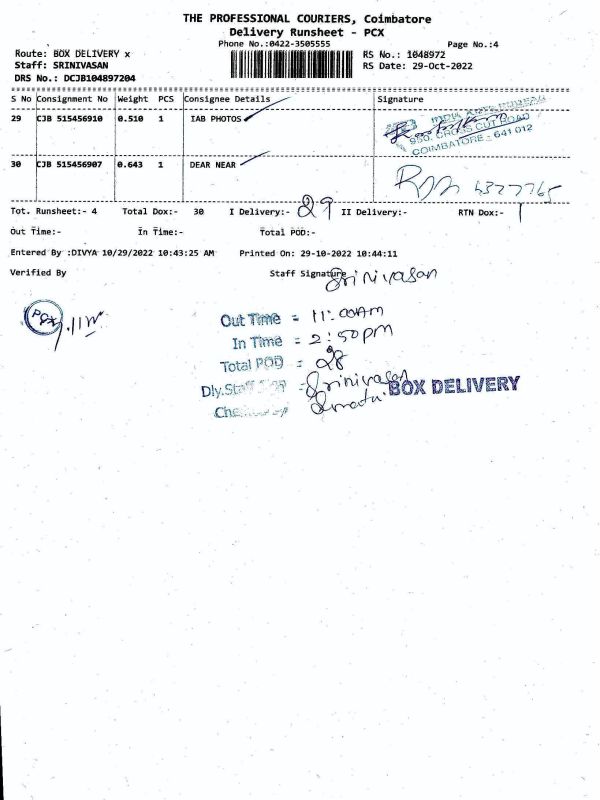 THE PROFESSIONAL COURIERS, Coimbatore
Delivery Runsheet - PCX
Phone No.:0422-3505555 Page No.:4
Route: BOX DELIVERY x RS No.: 1048972
Staff: SRINIVASAN RS Date: 29-Oct-2022
DRS No.: DCJB104897204
S No Consignment No Weight PCS Consignee Details Signature
29 CJB 515456910 0.510 1 IAB PHOTOS
CROSS CUT ROAD
COIMBATORE - 641 012
30 CJB 515456907 0.643 1 DEAR NEAR
Tot. Runsheet:- 4 Total Dox:- 30 I Delivery:- 29 II Delivery:- RTN Dox:- 1
Out Time:- In Time:- Total POD:-
Entered By :DIVYA 10/29/2022 10:43:25 AM Printed On: 29-10-2022 10:44:11
Verified By Staff Signature Srinivasan
PCX
Out Time = 11:00AM
In Time = 2:50PM
Total POD = 28
Dly.Staff Sign = Srinivasan BOX DELIVERY